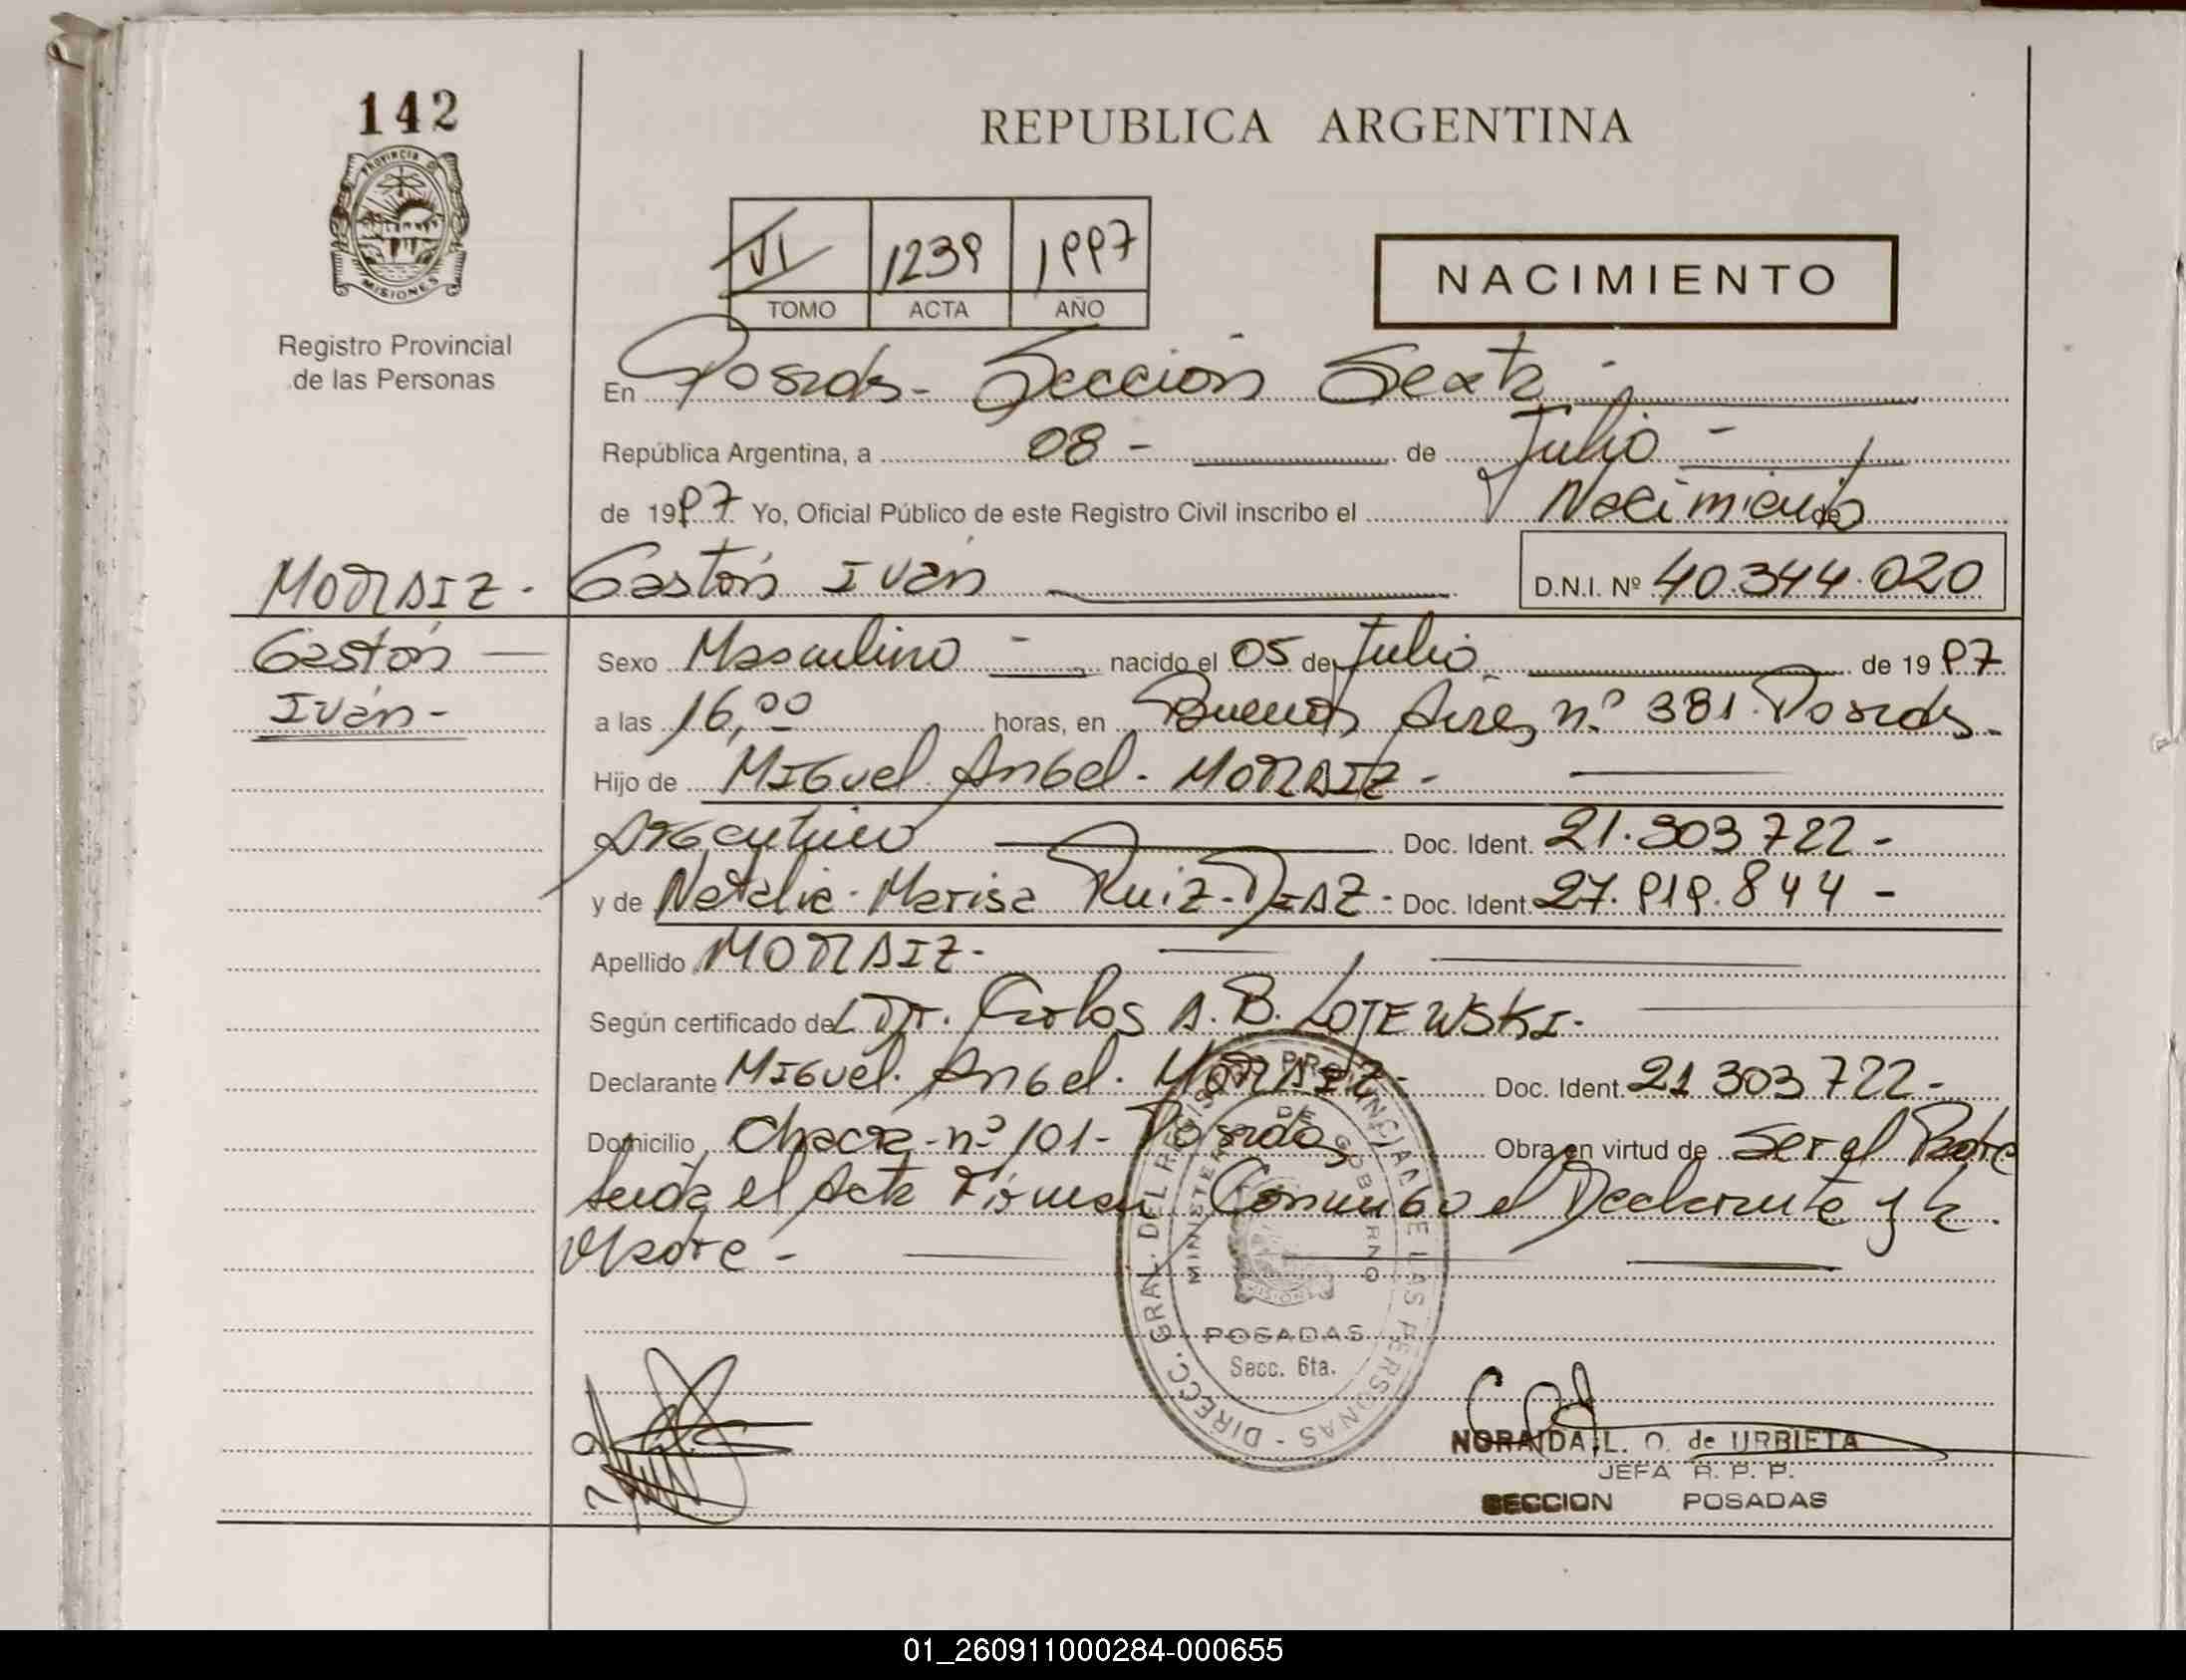 142
REPUBLICA ARGENTINA
PROVINCIA D
MISIONES
Registro Provincial
de las Personas
VI 1239 1997
TOMO ACTA AÑO
NACIMIENTO
En Posadas - Sección Sexta -
República Argentina, a 08 - de Julio -
de 1997 Yo, Oficial Público de este Registro Civil inscribo el Nacimiento
de
MORAIZ - Gastón Iván D.N.I. Nº 40.344.020
Gastón — Sexo Masculino - nacido el 05 de Julio de 1997
Iván - a las 16,00 horas, en Buenos Aires n.º 381 Posadas -
Hijo de Miguel Angel - MORAIZ -
Argentino Doc. Ident. 21.303722 -
y de Natalia Marisa Ruiz-DIAZ - Doc. Ident. 27.919.844 -
Apellido MORAIZ -
Según certificado del Dr. Carlos A. B. LOTEWSKI -
Declarante Miguel Angel MORAIZ - Doc. Ident. 21 303 722 -
Domicilio Chacra - nº 101 - Posadas Obra en virtud de Ser el Padre
Leída el Acta Firman Conmigo el Declarante y la
Madre -
DIRECC. GRAL. DEL REGISTRO PROVINCIAL DE LAS PERSONAS -
MINISTERIO DE GOBIERNO
MISIONES
POSADAS
Secc. 6ta.
NORAIDA L. O. de URBIETA
JEFA R. P. P.
SECCION POSADAS
01_260911000284-000655